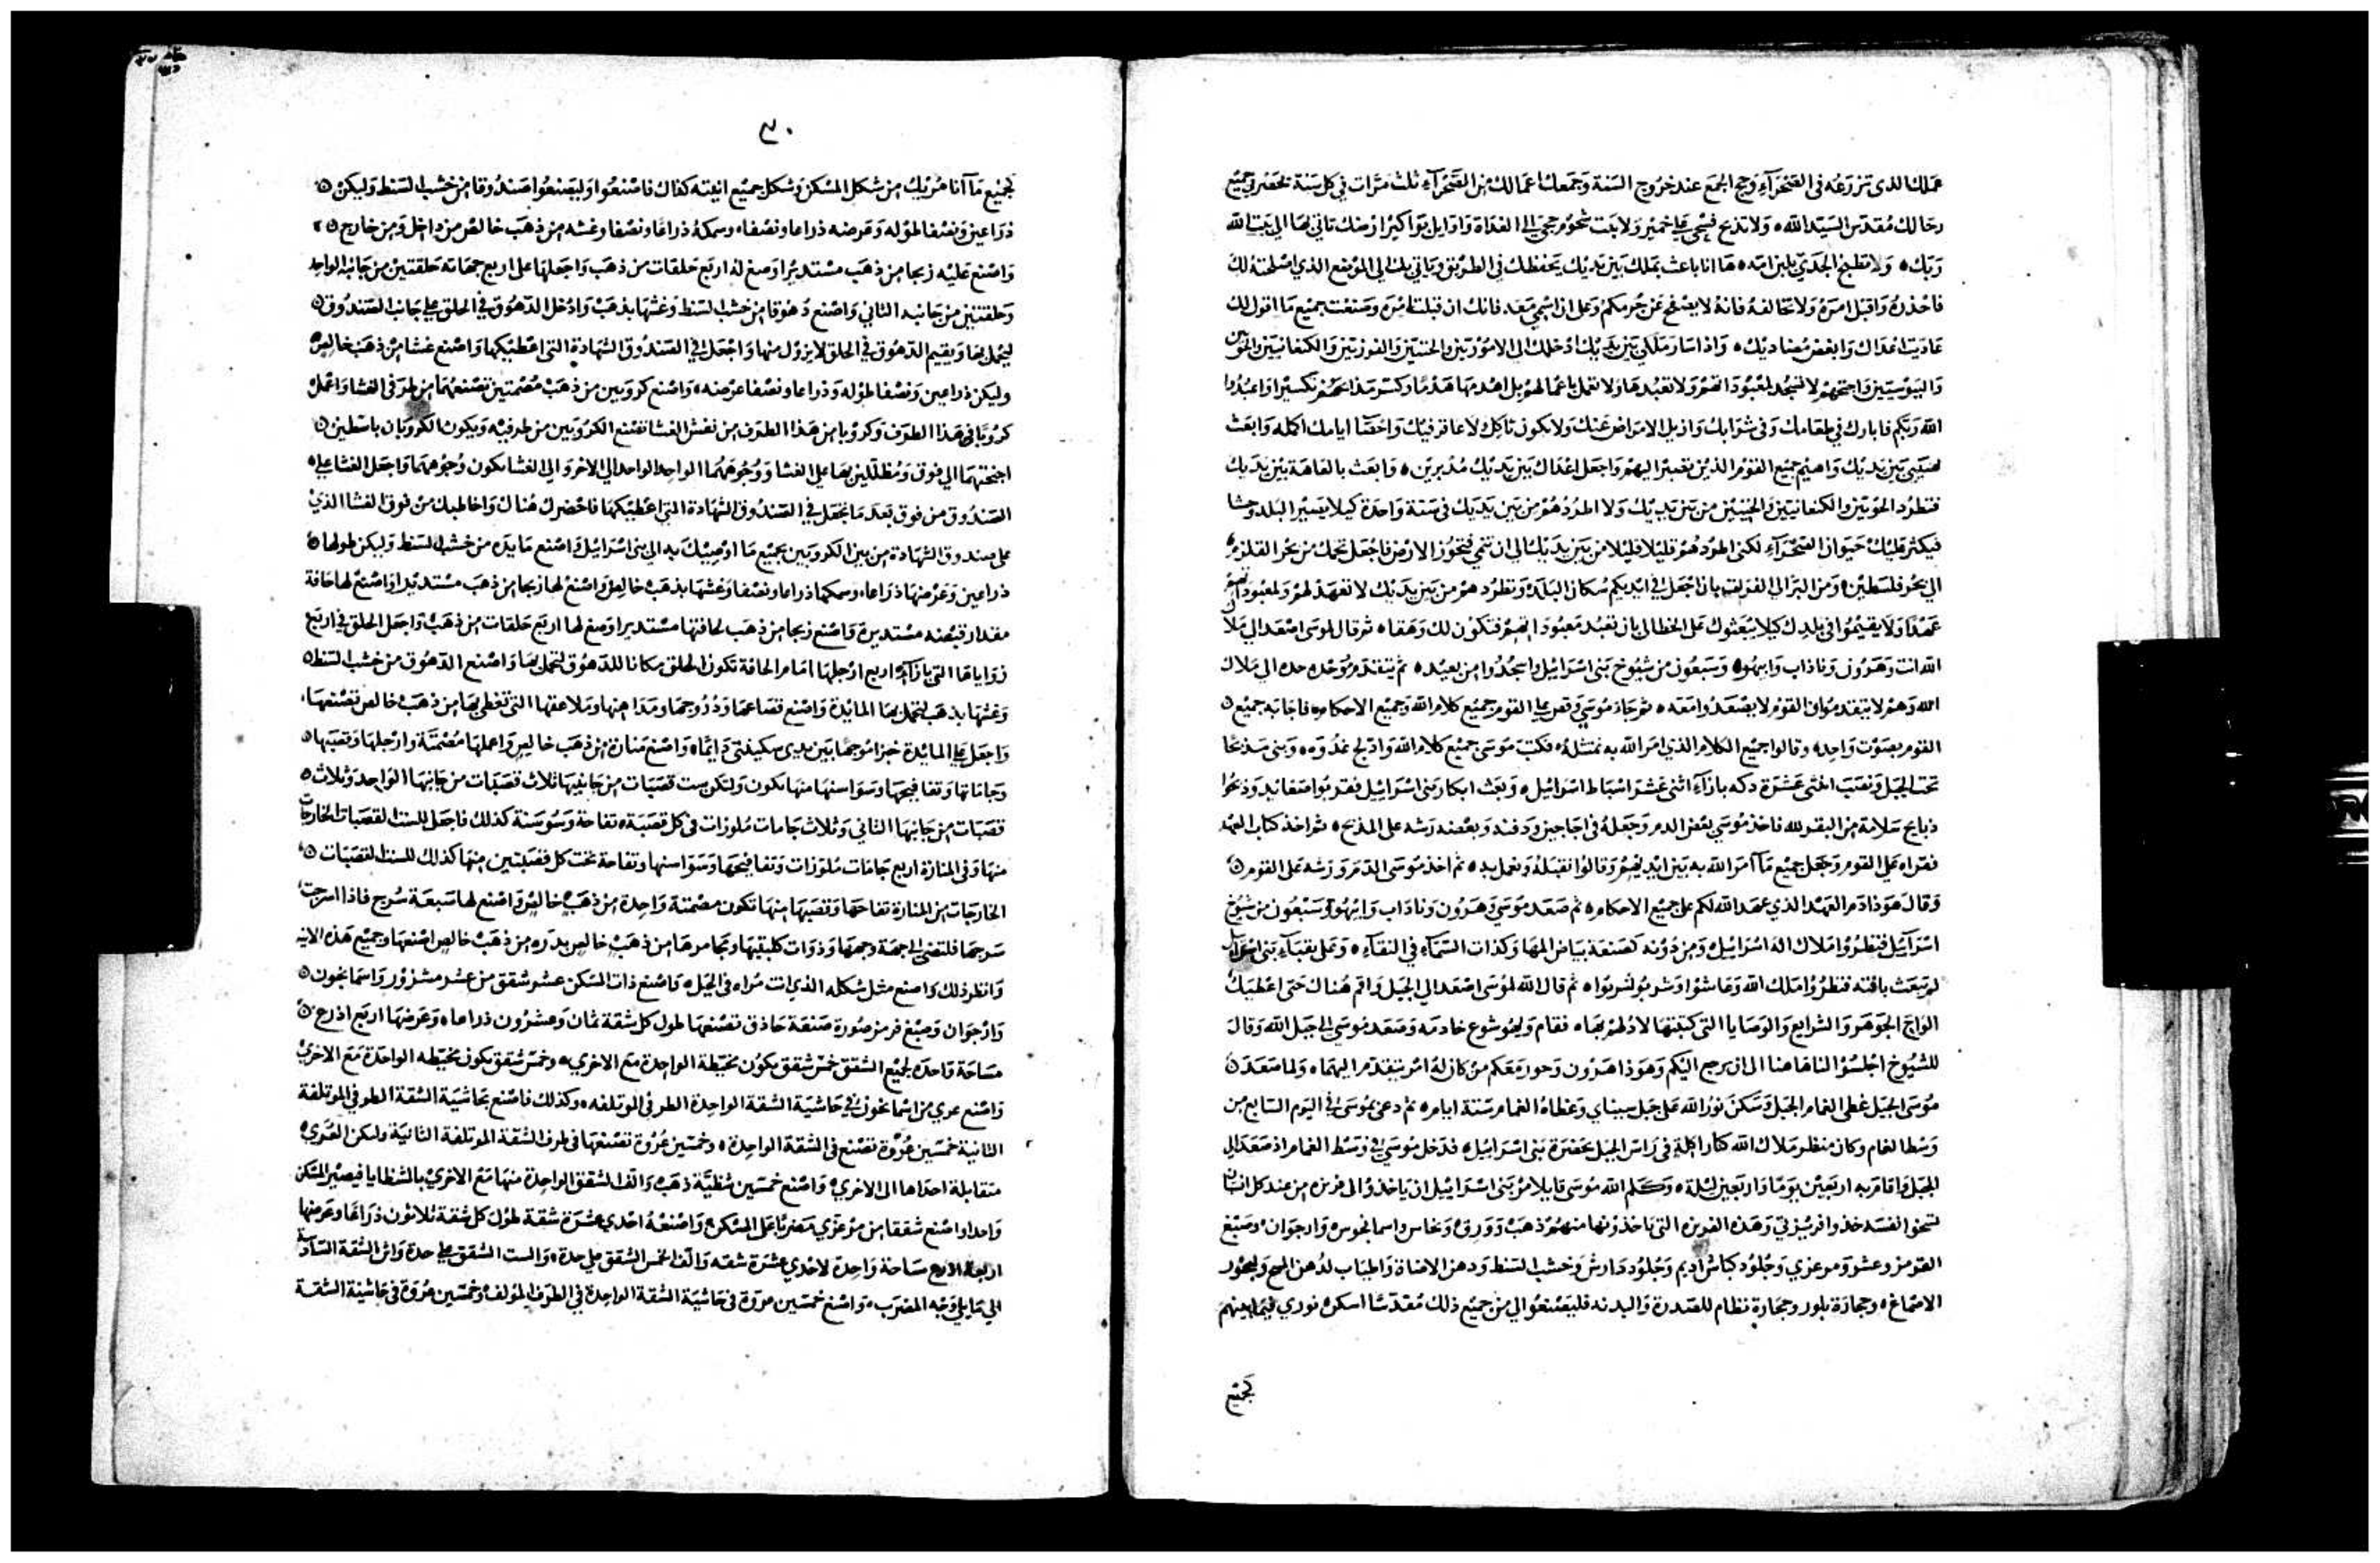 عملك الذى تزرعه فى الصحراء وحج الجمع عند خروج السنة وجمعك اعمالك من الصحراء ثلث مرات في كل سنة تحضر جميع
رجالك مقدس السيد الله ه ولا تذبح فسحى على خمير ولا يبت شحوم حجى الى الغداة واوايل بواكير ارضك تاتي بها الى بيت الله
ربك ه ولا تطبخ الجدي بلبن امه ه ها انا باعث بملك بين يديك يحفظك في الطريق وياتي بك الى الموضع الذي اصلحته لك
فاحذره واقبل امره ولا تخالفه فانه لا يصفح عن جرمكم وعلى ان اسمي معه فانك ان قبلت امره وصنعت جميع ما اقول لك
عاديت اعداك وابغض مضاديك ه واذا سار ملكي بين يديك ادخلك الى الاموريين والحتيين والفرزيين والكنعانيين والحويين
واليبوسيين واجتحهم لا تسجد لمعبوداتهم ولا تعبدها ولا تعمل باعمالهم بل اهدمها هدما وكسر مذابحهم تكسيرا واعبدوا
الله ربكم فابارك في طعامك وفى شرابك وازيل الامراض عنك ولا تكون ثاكل ولا عاقر فيك واحصا ايامك اكمله وابعث
هيبتى بين يديك واهيم جميع القوم الذين تعبر اليهم واجعل اعداك بين يديك مدبرين ه وابعث بالعاهة بين يديك
فتطرد الحويين والكنعانيين والحتيين من بين يديك ولا اطردهم من بين يديك فى سنة واحدة كيلا يصير البلد وحشا
فيكثر عليك حيوان الصحراء لكنى اطردهم قليلا قليلا من بين يديك الى ان تنمي فتحوز الارض فاجعل تخمك من بحر القلزم
الى بحر فلسطين ه ومن البر الى الفرات بان اجعل في ايديكم سكان البلد ه وتطردهم من بين يديك لا تعهد لهم ولمعبوداتهم
عهدا ولا يقيموا في بلدك كيلا يبعثوك على الخطا الى بان تعبد معبوداتهم فتكون لك وهقا ه ثم قال لموسى اصعد الى ملاك
الله انت وهرون وناداب وابيهو ه وسبعون من شيوخ بنى اسرائيل واسجدوا من بعيد ه ثم يتقدم وحده الى ملاك
الله وهم لا يتقدموا والقوم لا يصعدوا معه ه ثم جاء موسى وقص على القوم جميع كلام الله وجميع الاحكام ه فاجابه جميع
القوم بصوت واحد ه وقالوا جميع الكلام الذي امر الله به نمتثله ه فكتب موسى جميع كلام الله وادلج غدوه ه وبنى مذبحا
تحت الجبل ونصب اثنى عشرة دكه بازاء اثنى عشر اسباط اسرائيل ه وبعث ابكار بنى اسرائيل فقربوا صعائد وذبحوا
ذبايح سلامة من البقر لله فاخذ موسى بعض الدم وجعله في اجاجين ودفنه وبعضه رشه على المذبح ه ثم اخذ كتاب العهد
فقراه على القوم وجعل جميع ما امر الله به بين ايديهم وقالوا نقبله ونعمل به ه ثم اخذ موسى الدم ورشه على القوم
وقال هوذا دم العهد الذي عهد الله لكم على جميع الاحكام ه ثم صعد موسى وهرون وناداب وابيهو وسبعون من شيوخ
اسرائيل فنظروا ملاك اله اسرائيل ومن دونه كصنعة بياض المها وكذات السماء في النقاء ه وعلى نقباء بنى اسرائيل
لم يبعث بافته فنظروا ملك الله وعاشوا وشربوا ه ثم قال الله لموسى اصعد الى الجبل واقم هناك حتى اعطيك
الواح الجوهر والشرايع والوصايا التى كتبتها لادلهم بها ه فقام ويهوشوع خادمه وصعد موسى الى جبل الله وقال
للشيوخ اجلسوا لنا هاهنا الى ان يرجع اليكم وهوذا هرون وحور معكم من كان له امر يتقدم اليهما ه ولما صعد
موسى الجبل غطى الغمام الجبل وسكن نور الله على جبل سيناي وغطاه الغمام ستة ايام ه ثم دعى بموسى في اليوم السابع من
وسط الغمام وكان منظر ملاك الله كنار اكلة في راس الجبل بحضرة بنى اسرائيل ه فدخل موسى في وسط الغمام اذ صعد الى
الجبل واقام به اربعين يوما واربعين ليلة ه وكلم الله موسى قايلا مر بنى اسرائيل ان ياخذوا لى فرزه من عند كل انسان
تسخوا نفسه خذوا فريزتي وهذه الفريزه التى تاخذونها منهم ذهب وورق ه ونحاس واسمانجون ه وارجوان ه وصبغ
القرمز وعشر ومرعزي وجلود كباش اديم وجلود دارش وخشب السنط ودهن الاضاة واطياب لدهن المسح ولبخور
الاصماغ ه وحجارة بلور وحجارة نظام للصدرة والبدنه فليصنعوا لي من جميع ذلك مقدسا اسكن نوري فيما بينهم
بجميع
٣٠
بجميع ما انا مريك من شكل المسكن وشكل جميع انيته كذاك فاصنعوا وليصنعوا صندوقا من خشب السنط وليكن
ذراعين ونصفا طوله وعرضه ذراعا ونصفا ه وسمكه ذراعا ونصفا وغشه من ذهب خالص من داخل ومن خارج
واصنع عليه زيجا من ذهب مستديرا وصغ له اربع حلقات من ذهب واجعلها على اربع جهاته حلقتين من جانبه الواحد
وحلقتين من جانبه الثاني واصنع دهوقا من خشب السنط وغشها بذهب وادخل الدهوق في الحلق على جانب الصندوق
ليحمل بها ويقيم الدهوق في الحلق لا يزول منها واجعل في الصندوق الشهادة التى اعطيكها واصنع غشا من ذهب خالص
وليكن ذراعين ونصفا طوله وذراعا ونصفا عرضه ه واصنع كروبين من ذهب مصمتين تصنعهما من طرفى الغشا واعمل
كروبا فى هذا الطرف وكروبا من هذا الطرف من نفس الغشا تصنع الكروبين من طرفيه ويكون الكروبان باسطين
اجنحتهما الى فوق ومظللين بها على الغشا ووجوههما الواحد الى الاخر والى الغشا تكون وجوههما واجعل الغشا على
الصندوق من فوق بعد ما تجعل في الصندوق الشهادة التى اعطيكها فاحضرك هناك واخاطبك من فوق الغشا الذي
على صندوق الشهادة من بين الكروبين بجميع ما اوصيك به الى بنى اسرائيل واصنع مايده من خشب السنط وليكن طولها
ذراعين وعرضها ذراعا ه وسمكها ذراعا ونصفا وغشها بذهب خالص واصنع لها زيجا من ذهب مستديرا واصنع لها حافة
مقدار قبضه مستديرة واصنع زيجا من ذهب لحافتها مستديرا وصغ لها اربع حلقات من ذهب واجعل الحلق في اربع
زواياها التى بازاء اربع ارجلها امام الحافة تكون الحلق مكانا للدهوق لتحمل بها واصنع الدهوق من خشب السنط
وغشها بذهب لتحمل بها المايدة واصنع قصاعها ودروجها ومداهنها وملاعقها التى تغطى بها من ذهب خالص تصنعها
واجعل على المايدة خبزا موجها بين يدى سكينتى دائما ه واصنع منارة من ذهب خالص واعملها مصمتة وارجلها وقصبها
وجاماتها وتفافيحها وسواسنها منها تكون ولتكن ست قصبات من جانبيها ثلاث قصبات من جانبها الواحد وثلاث
قصبات من جانبها الثاني وثلاث جامات ملوزات فى كل قصبة ه تفاحة وسوسنة كذلك فاجعل للست القصبات الخارجات
منها وفى المنارة اربع جامات ملوزات وتفافيحها وسواسنها وتفاحة تحت كل قصبتين منها كذلك للست القصبات
الخارجات من المنارة تفاحها وقصبها منها تكون مصمتة واحدة من ذهب خالص واصنع لها سبعة سرج فاذا اسرجت
سرجها فلتضى الى جهة وجهها وذوات كلبتيها ومجامرها من ذهب خالص بدره من ذهب خالص اصنعها وجميع هذه الانيه
وانظر ذلك واصنع مثل شكله الذي انت مراه فى الجبل ه واصنع ذات المسكن عشر شقق من عشر مشزور واسمانجون
وارجوان وصبغ قرمز صورة صنعة حاذق تصنعها طول كل شقة ثمان وعشرون ذراعا ه وعرضها اربع اذرع
مساحة واحده لجميع الشقق خمس شقق يكون مخيطة الواحدة مع الاخري ه وخمس شقق يكون مخيطه الواحدة مع الاخري
واصنع عري من اسمانجون في حاشية الشقة الواحدة الطرفى الموتلفه ه وكذلك فاصنع بحاشية الشقة الطرفى الموتلفة
الثانية خمسين عروة تصنع فى الشقة الواحدة ه وخمسين عروة تصنعها فى طرف الشقة الموتلفة الثانية ولتكن العري
متقابلة احداها الى الاخري ه واصنع خمسين شظية ذهب والف الشقق الواحدة منها مع الاخري بالشظايا فيصير المسكن
واحدا واصنع شققا من مرعزي مضربا على المسكن ه واصنعه احدي عشرة شقة طول كل شقة ثلاثون ذراعا وعرضها
اربعة الاذرع مساحة واحدة لاحدي عشرة شقه والف الخمس الشقق على حدة والست الشقق على حدة واثن الشقة السادسة
الى ما يلي وجه المضرب ه واصنع خمسين عروة فى حاشية الشقة الواحدة في الطرف المولف ه وخمسين عروة فى حاشية الشقة